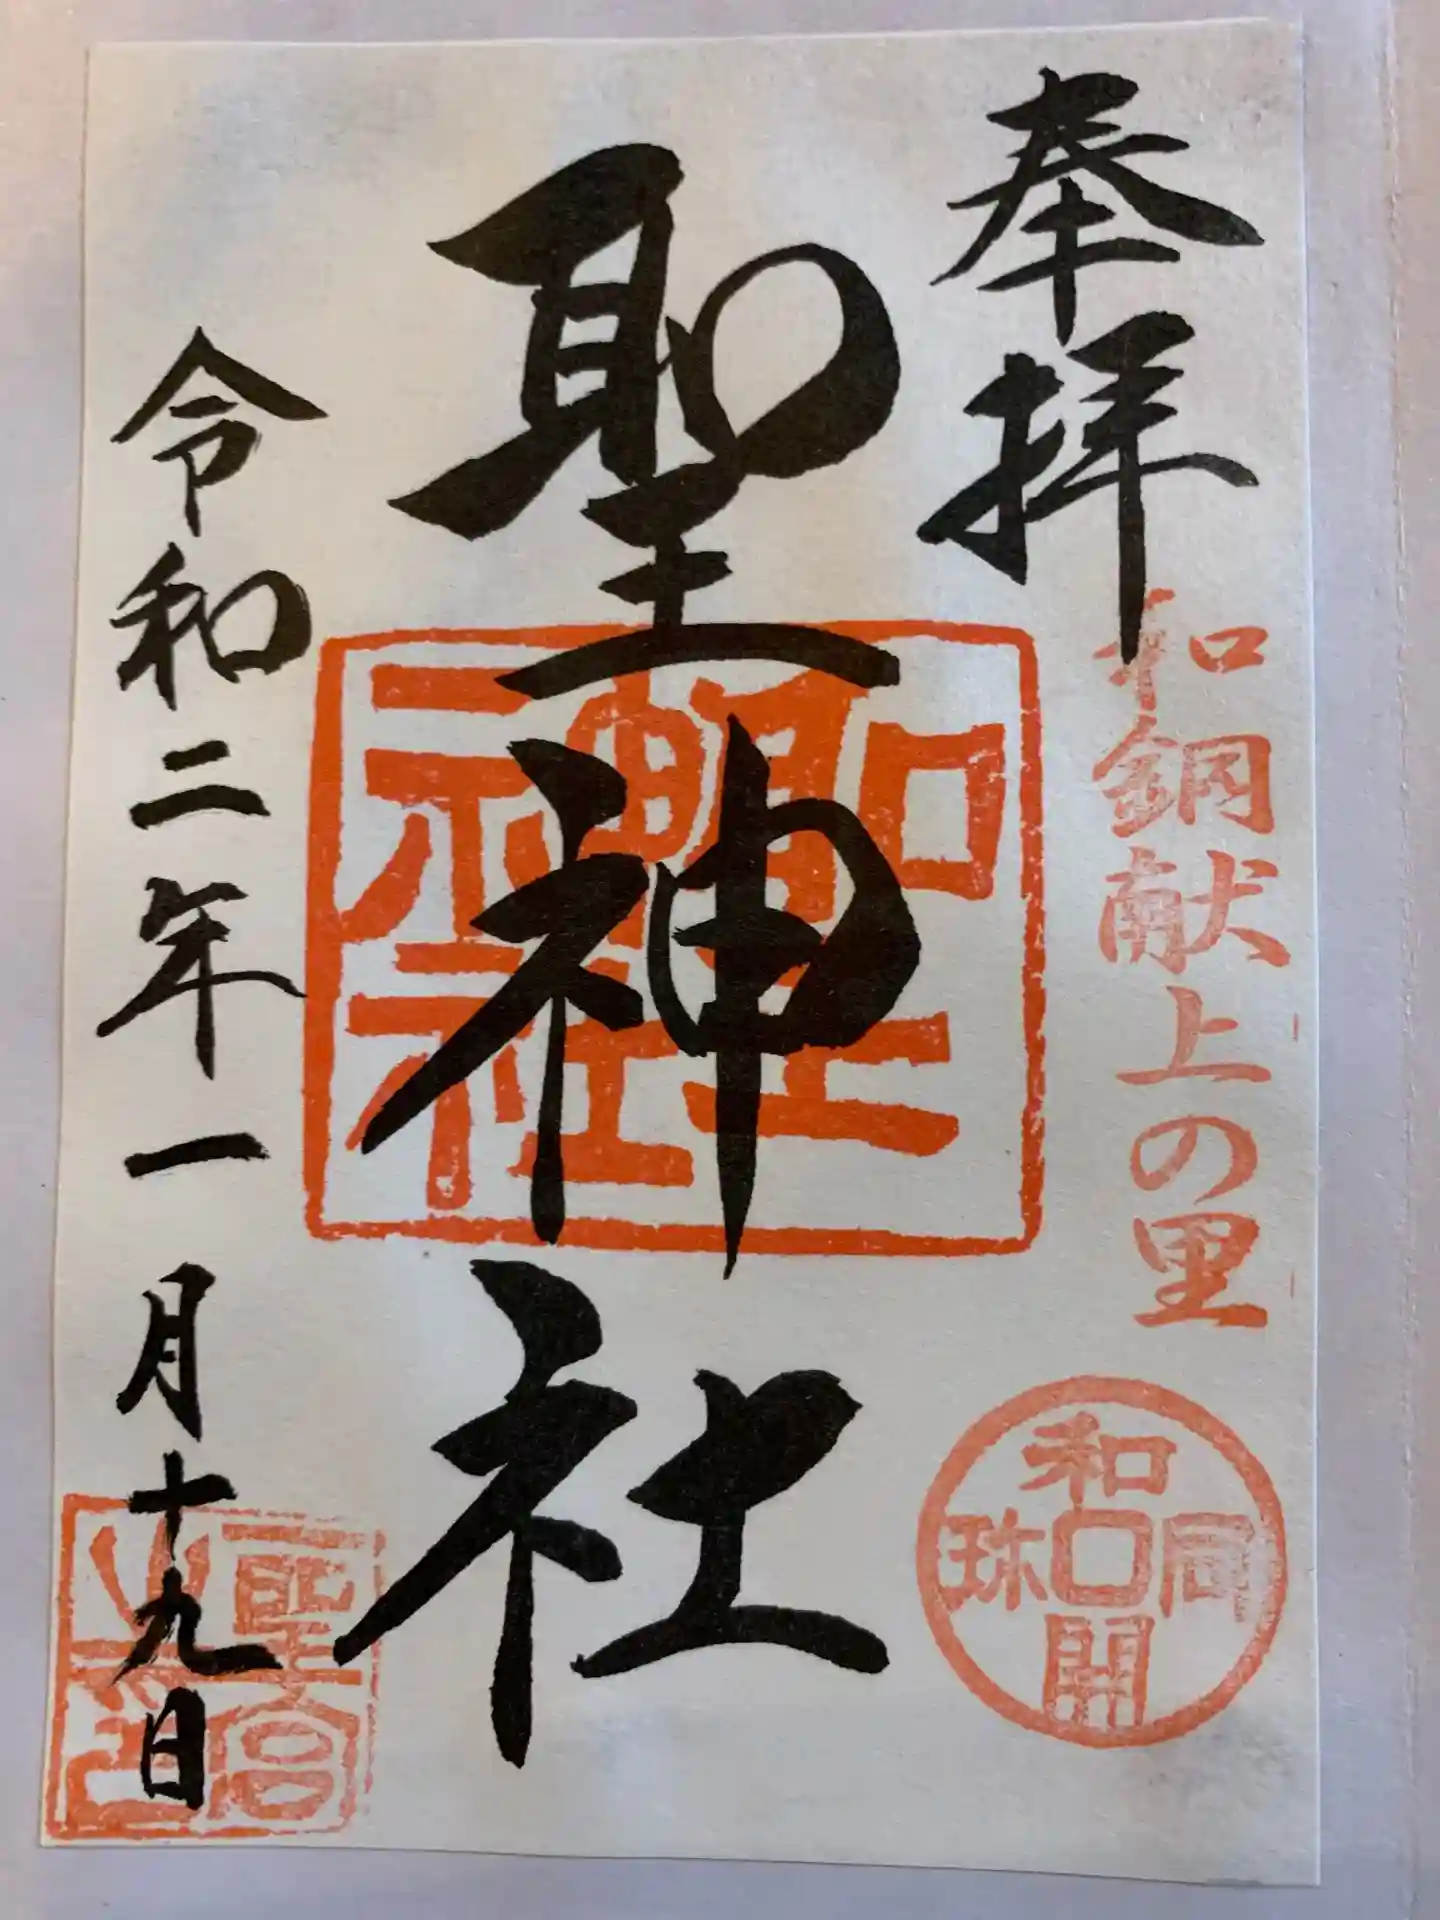 奉拝
和銅献上の里
和同開珎
聖神社
聖神社
令和二年一月十九日
聖宮之印